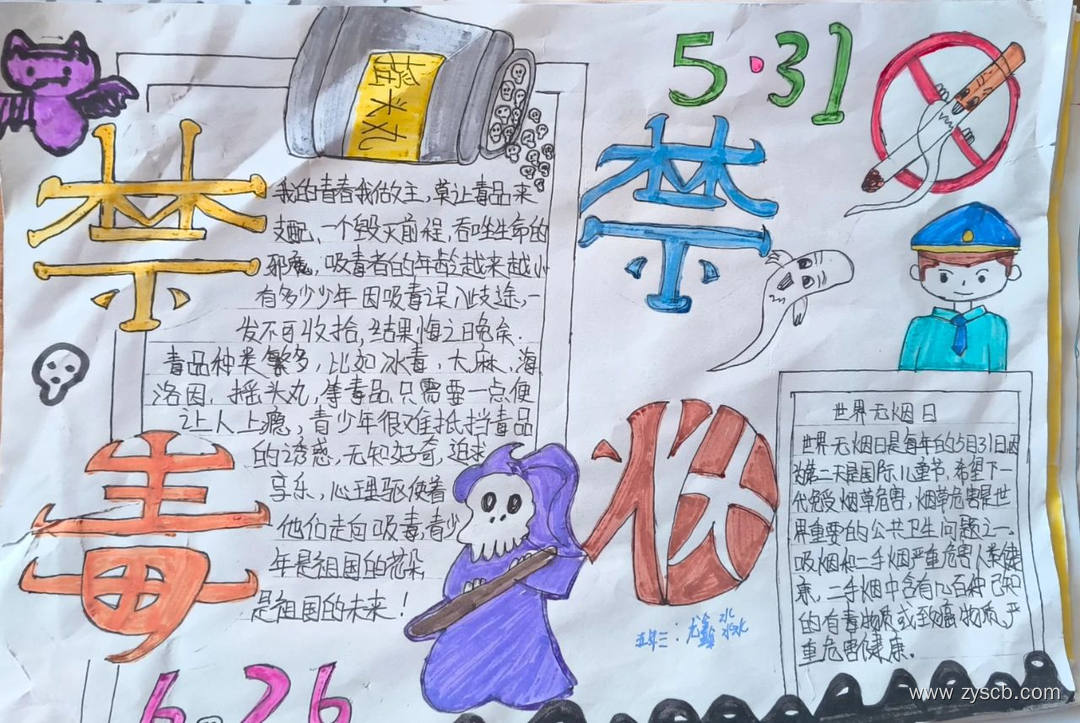 5·31
禁
毒
禁
烟
我的青春我做主,莫让毒品来
支配,一个毁灭前程,吞噬生命的
邪魔,吸毒者的年龄越来越小
有多少少年因吸毒误入歧途,一
发不可收拾,结果悔之日晚矣.
毒品种类繁多,比如冰毒,大麻,海
洛因,摇头丸,等毒品只需要一点便
让人上瘾,青少年很难抵挡毒品
的诱惑,无知好奇,追求
享乐,心理驱使着
他们走向吸毒,青少
年是祖国的花朵
是祖国的未来!
6.26
世界无烟日
世界无烟日是每年的5月31日因
为第二天是国际儿童节,希望下一
代免受烟草危害,烟草危害是世
界重要的公共卫生问题之一.
吸烟和二手烟严重危害人类健
康,二手烟中含有几百种已知
的有毒物质或致癌物质,严
重危害健康.
五年三:尤鑫
www.zyscb.com